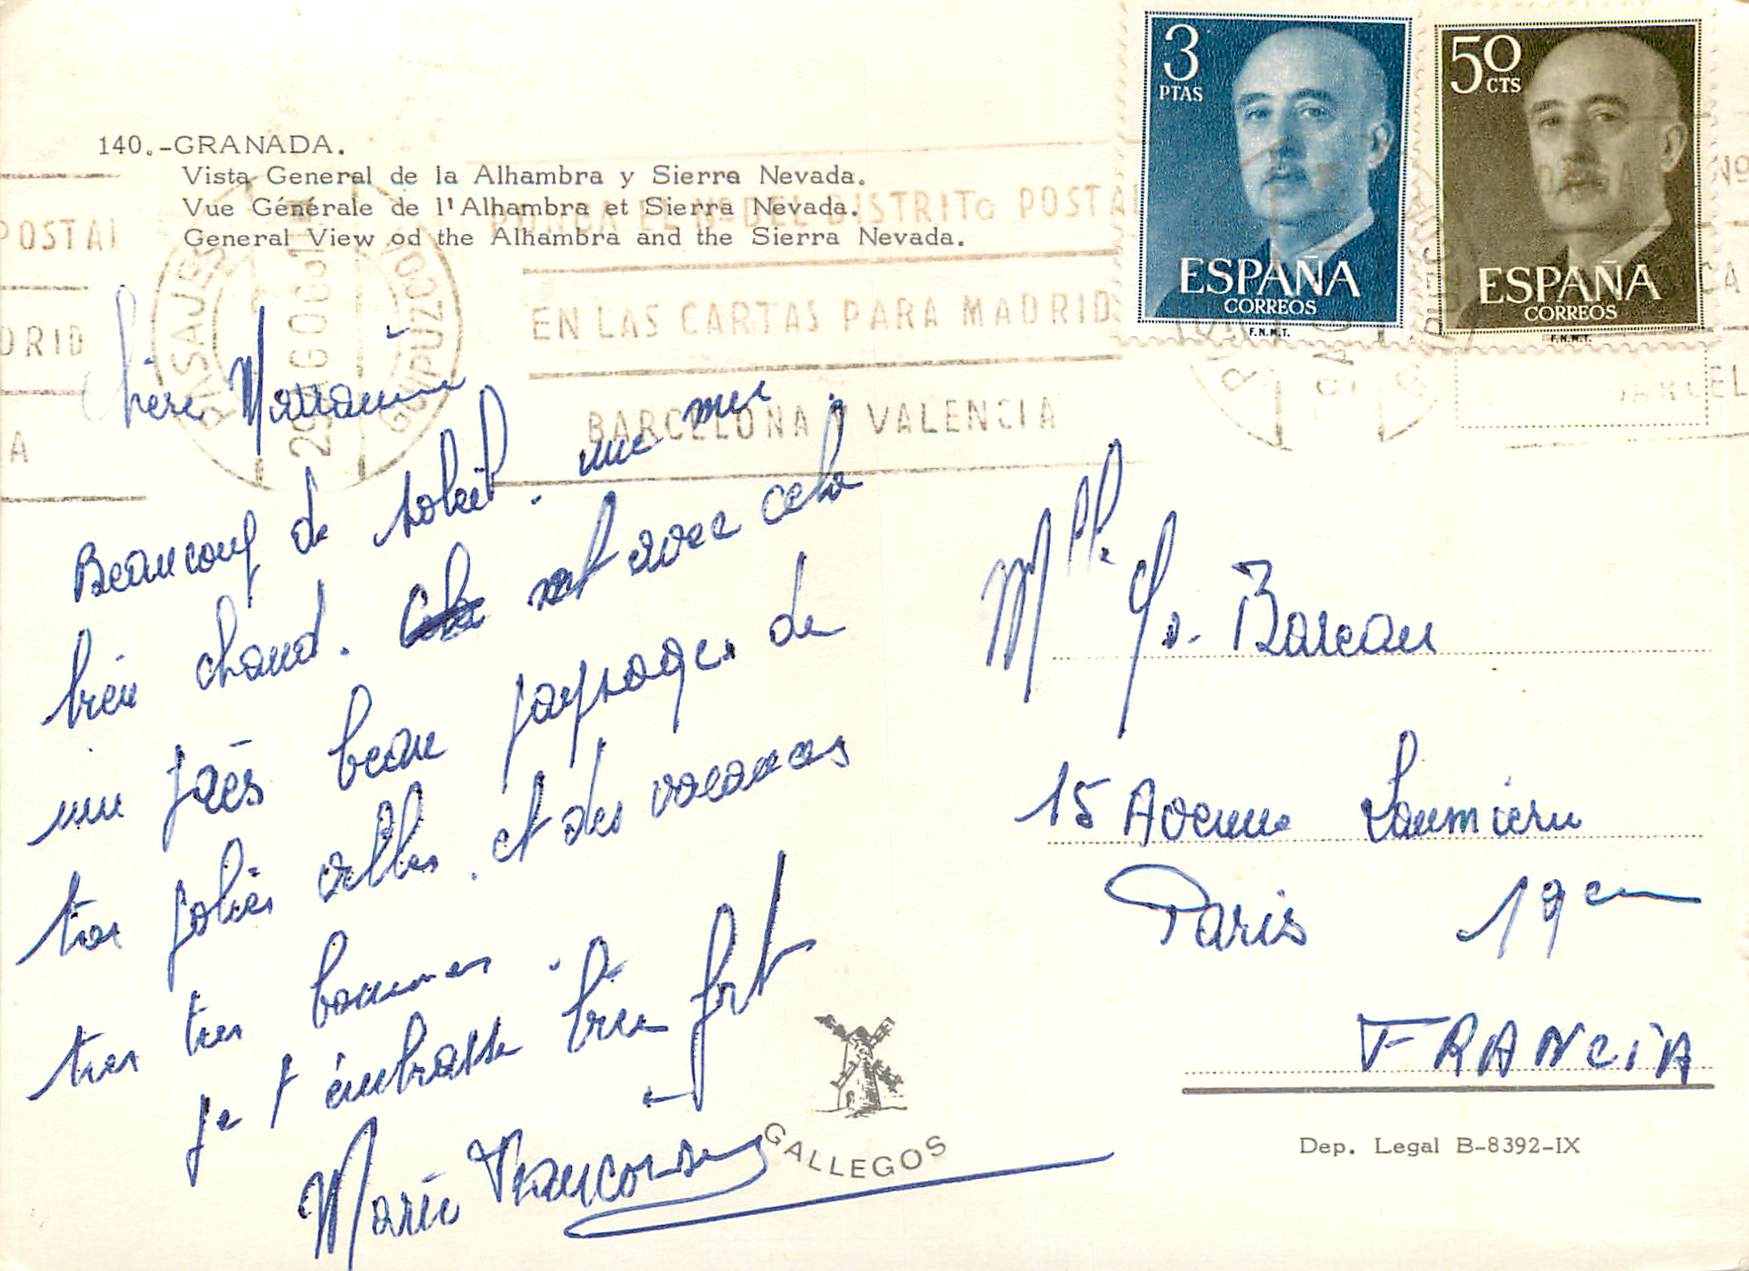 140.-GRANADA.
Vista General de la Alhambra y Sierra Nevada.
Vue Générale de l'Alhambra et Sierra Nevada.
General View od the Alhambra and the Sierra Nevada.
3
PTAS
ESPAÑA
CORREOS
F.N.M.T.
50
CTS
ESPAÑA
CORREOS
F.N.M.T.
PASAJES
GUIPUZCOA
DEL DISTRITO POSTAL
EN LAS CARTAS PARA MADRID
BARCELONA VALENCIA
chère
Beaucoup de soleil. une mer
bien chaud. et avec cela
un beau paysages de
tres jolies villes. et des vacances
tres tres bonnes.
je t'embrasse bien fort
Marie Françoise
GALLEGOS
Mlle Bareau
15 Avenue Laumiere
Paris 19em
FRANCIA
Dep. Legal B-8392-IX